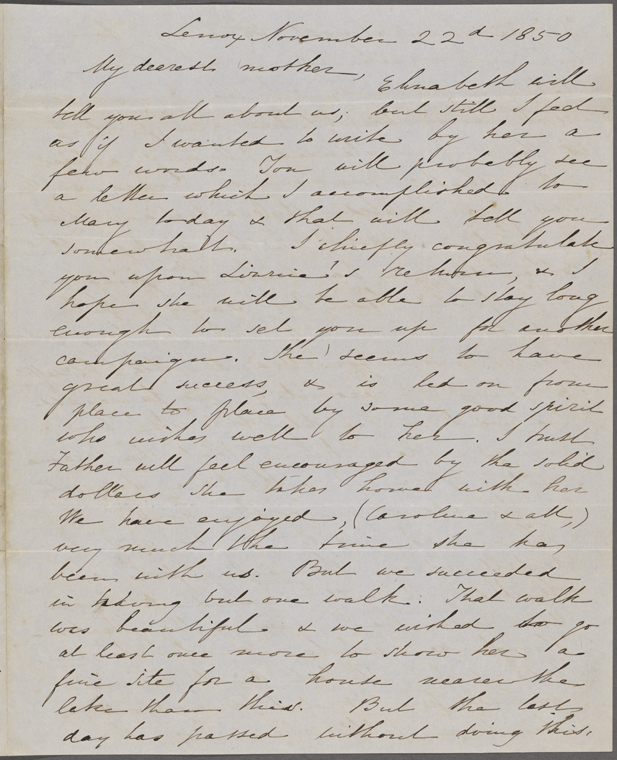 Lenox November 22d 1850
My dearest mother,
Elizabeth will
tell you all about us; but still I feel
as if I wanted to write by her a
few words. You will probably see
a letter which I accomplished to
Mary today & that will tell you
somewhat. I chiefly congratulate
you upon Lizzie's return, & I
hope she will be able to stay long
enough to set you up for another
campaign. She seems to have
great success, & is led on from
place to place by some good spirit
who wishes well to her. I trust
Father will feel encouraged by the solid
dollars she takes home with her
We have enjoyed, (Caroline & all,)
very much the time she has
been with us. But we succeeded
in having but one walk. That walk
was beautiful & we wished to go
at least once more to show her a
fine site for a house nearer the
lake than this. But the last
day has passed without doing this.